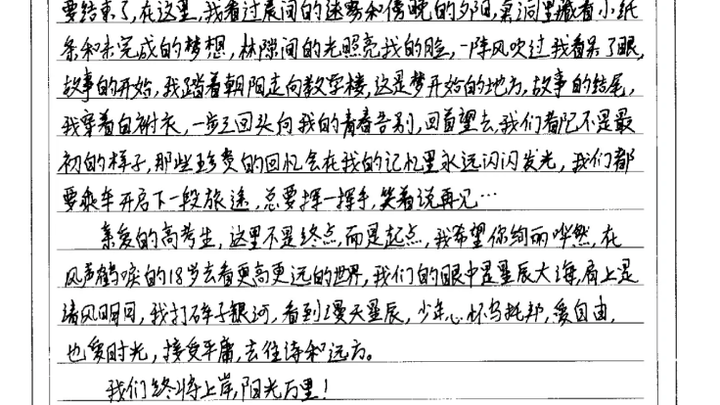 要结束了,在这里,我看过晨间的迷雾和傍晚的夕阳,桌洞里藏着小纸
条和未完成的梦想,林隙间的光照亮我的脸,一阵风吹过我看呆了眼,
故事的开始,我踏着朝阳走向教学楼,这是梦开始的地方,故事的结尾,
我穿着白衬衣,一步三回头向我的青春告别,回首望去,我们看似不是最
初的样子,那些珍贵的回忆会在我的记忆里永远闪闪发光,我们都
要乘车开启下一段旅途,总要挥一挥手,笑着说再见…
亲爱的高考生,这里不是终点,而是起点,我希望你绚丽哗然,在
风声鹤唳的18岁去看更高更远的世界,我们的眼中是星辰大海,肩上是
清风明月,我打碎了银河,看到漫天星辰,少年心怀乌托邦,爱自由,
也爱时光,接受平庸,去往诗和远方。
我们终将上岸,阳光万里!